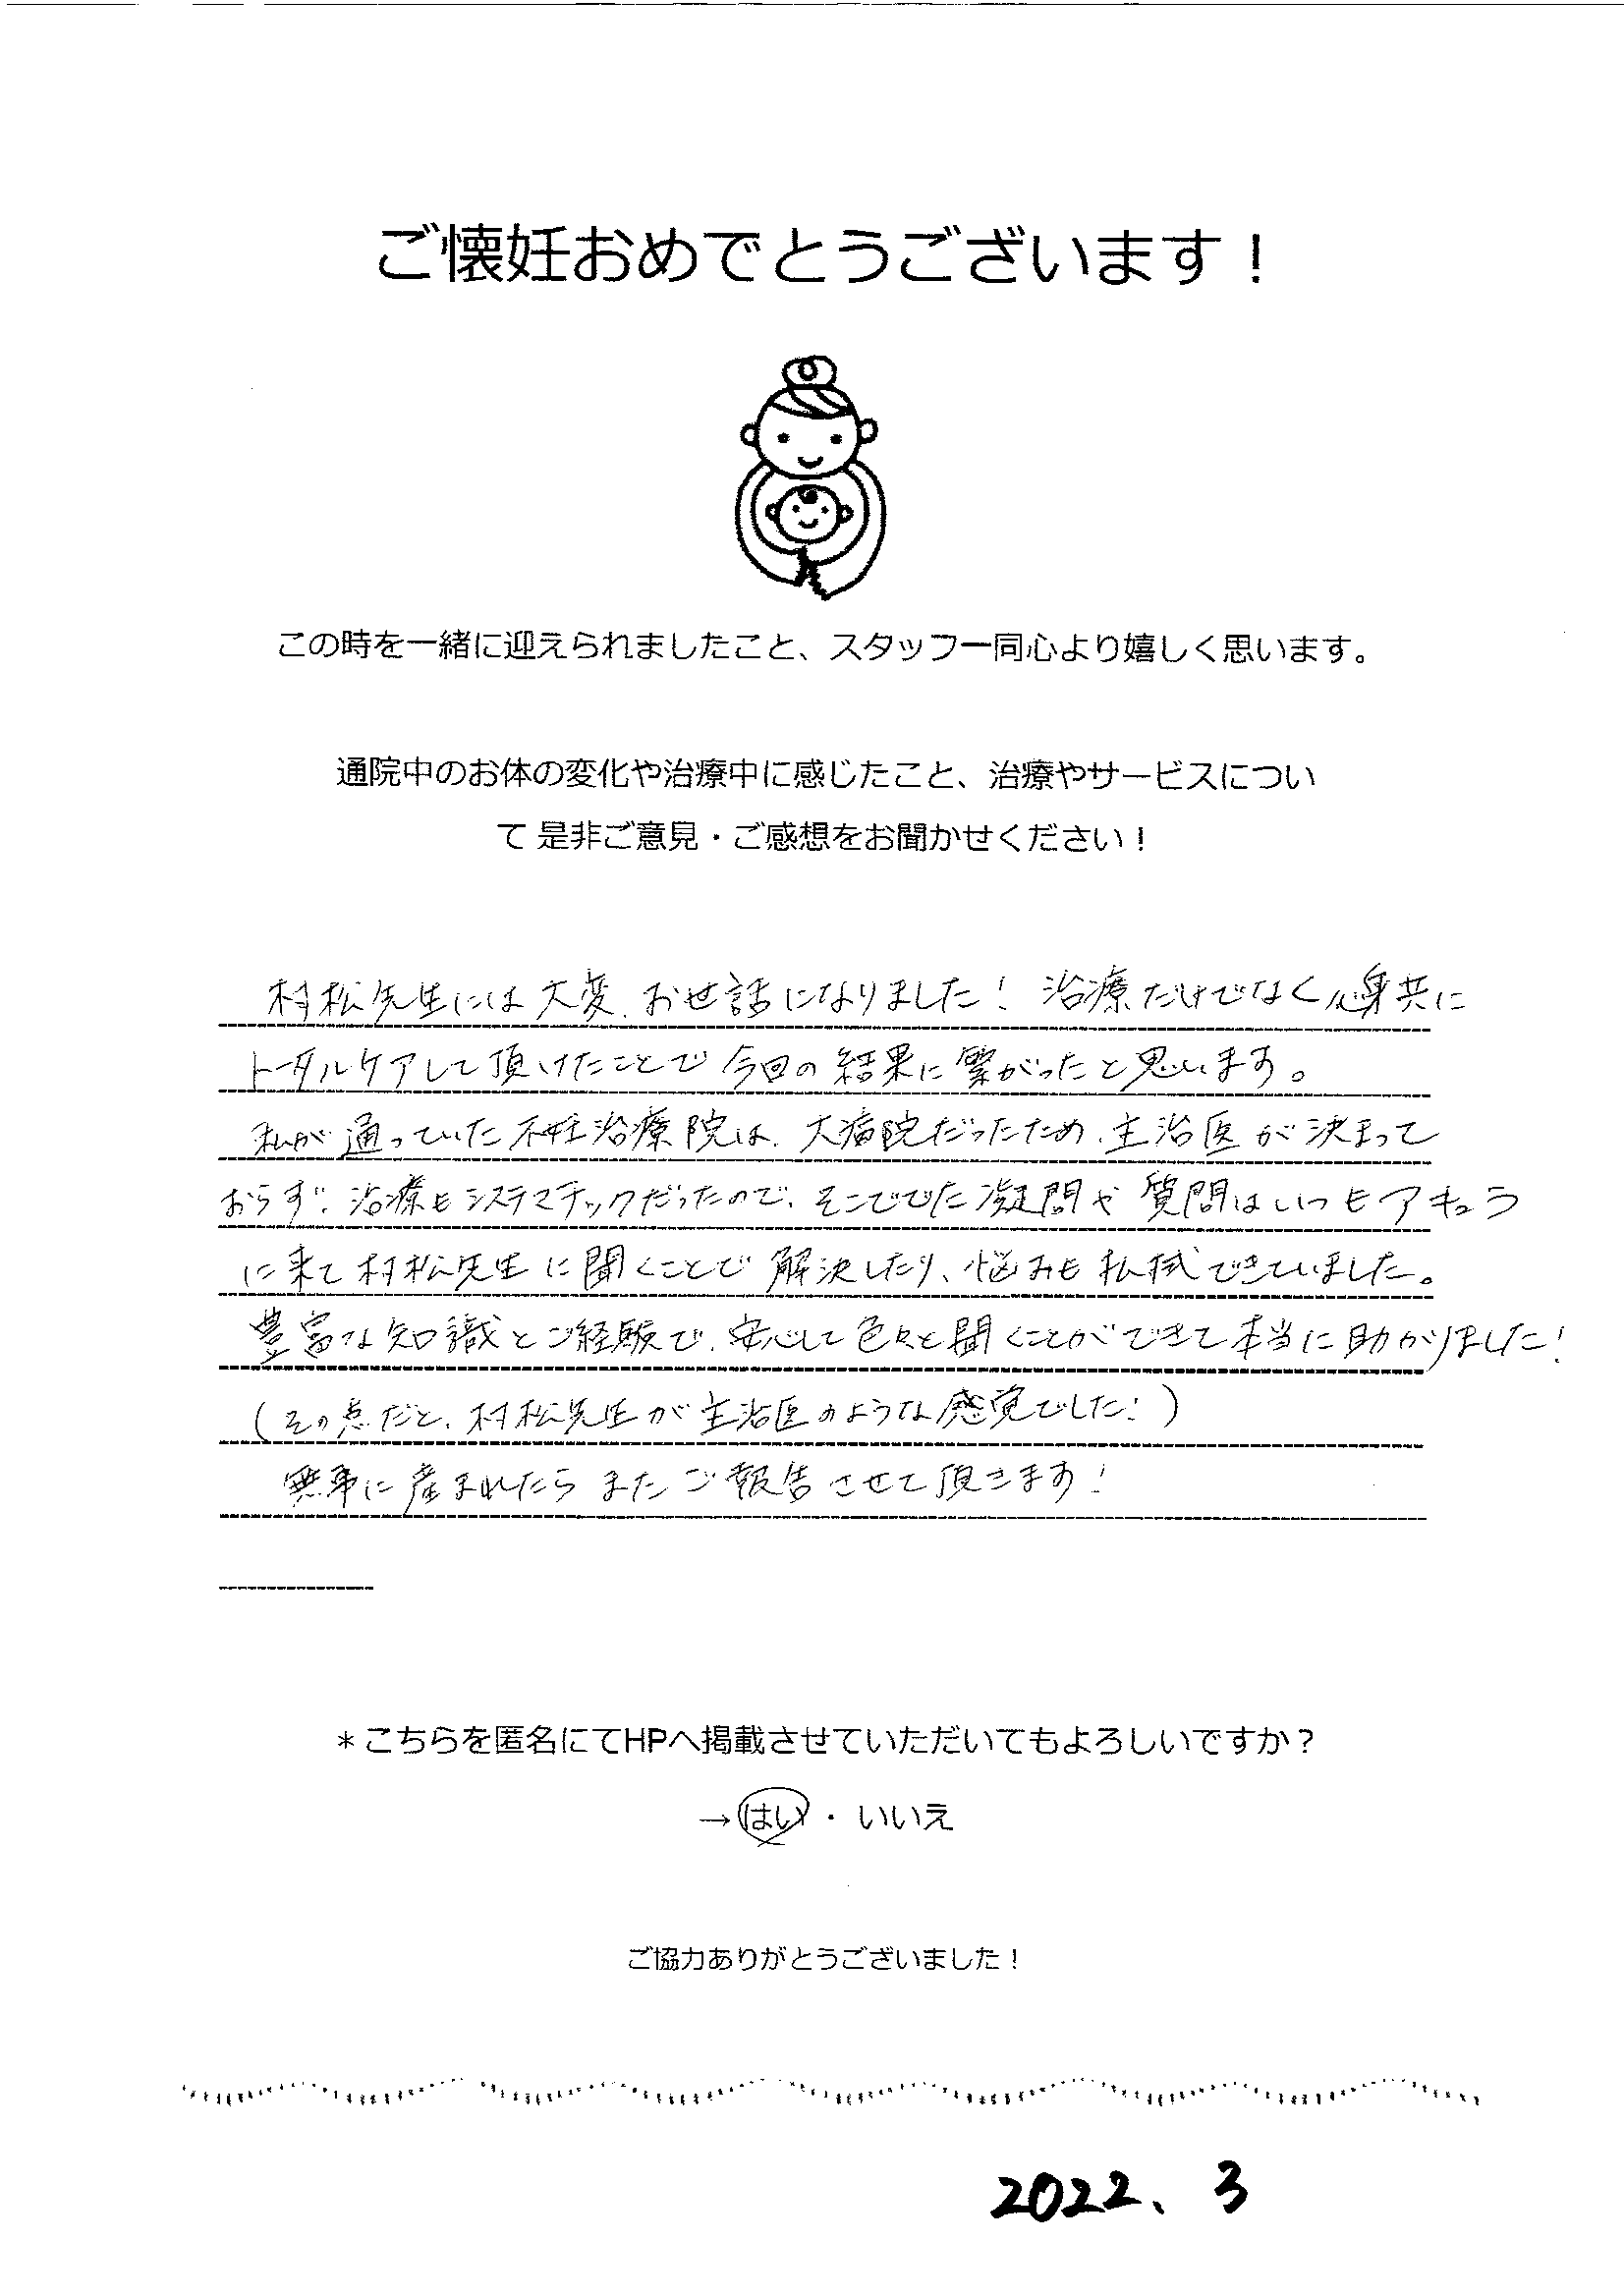 ご懐妊おめでとうございます！
この時を一緒に迎えられましたこと、スタッフ一同心より嬉しく思います。
通院中のお体の変化や治療中に感じたこと、治療やサービスについ
て 是非ご意見・ご感想をお聞かせください！
村松先生には大変、お世話になりました！ 治療だけでなく心身共に
トータルケアして頂けたことで今回の結果に繋がったと思います。
私が通っていた不妊治療院は、大病院だったため、主治医が決まって
おらず、治療もシステマチックだったので、そこででた凝問や質問はいつもアキュラ
に来て村松先生に聞くことで解決したり、悩みも払拭できていました。
豊富な知識とご経験で、安心して色々と聞くことができて本当に助かりました！
（その点だと、村松先生が主治医のような感覚でした！）
無事に産まれたらまたご報告させて頂きます！
＊こちらを匿名にてHPへ掲載させていただいてもよろしいですか？
→はい・いいえ
ご協力ありがとうございました！
2022、3